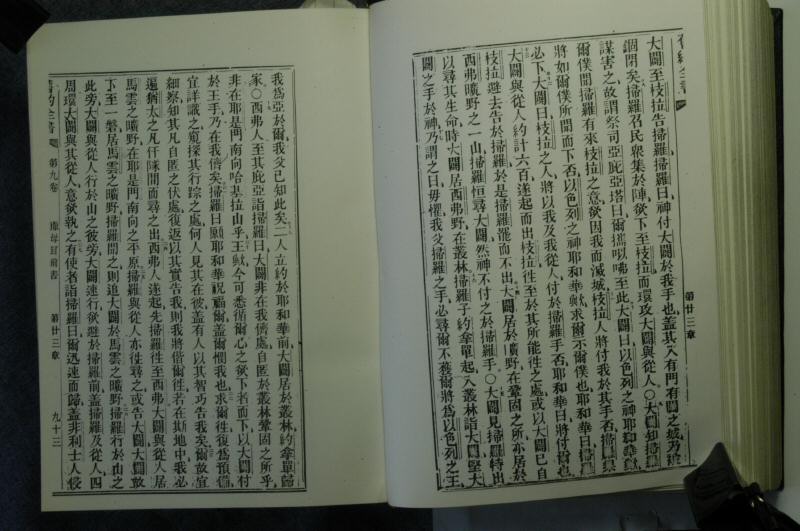 第廿三章
大闢至枝拉告掃羅掃羅曰神付大闢於我手也蓋其入有門有關之城乃被
錮閉矣掃羅召民衆集於陣欲下至枝拉而環攻大闢與從人〇大闢知掃羅
謀害之故謂祭司亞庇亞塔曰爾攜以咈至此大闢曰以色列之神耶和華
爾僕聞掃羅有來枝拉之意欲因我而滅城枝拉人將付我於其手否掃羅
將如爾僕所聞而下否以色列之神耶和華歟求爾示爾僕也耶和華曰掃
必下大闢曰枝拉之人將以我及我從人付於掃羅手否耶和華曰將付爾也
大闢與從人約計六百遂起而出枝拉徃至於其所能徃之處或以大闢已自
枝拉遯去告於掃羅於是掃羅罷而不出大闢居於曠野在鞏固之所亦居於
西弗曠野之一山掃羅恒尋大闢然神不付之於掃羅手〇大闢見掃羅特出
以尋其生命時大闢居西弗野在叢林掃羅子約拿單起入叢林詣大闢堅大
闢之手於神乃謂之曰毋懼我父掃羅之手必尋爾不獲爾將爲以色列之王
我爲亞於爾我父已知此矣二人立約於耶和華前大闢居於叢林約拿單歸
家〇西弗人至其庇亞詣掃羅曰大闢非在我儕處自匿於叢林鞏固之所乎
非在耶是門南向哈基拉山乎王歟今可悉循爾心之欲下者而下以大闢付
於王手乃在我儕矣掃羅曰願耶和華祝福爾蓋爾憫我也求爾徃復爲預備
宜詳識之窺探其行踪之處何人見其在彼蓋有人以其智巧告我矣爾故宜
細察知其凡自匿之伏處復返以其實告我則我將偕爾徃若在斯地中我必
遍猶太之凡仟隊間而尋之出西弗人遂起先掃羅徃至西弗大闢與從人居
馬雲之曠野在耶是門南向之平原掃羅與從人亦徃尋之或告大闢大闢故
下至一磐居馬雲之曠野掃羅聞之則追大闢於馬雲之曠野掃羅行於山之
此旁大闢與從人行於山之彼旁大闢速行欲避於掃羅前蓋掃羅及從人四
周環大闢與其從人意欲執之有使者詣掃羅曰爾迅速而歸蓋非利士人侵
舊約全書 第九卷 撒母耳前書 第廿三章 九十三